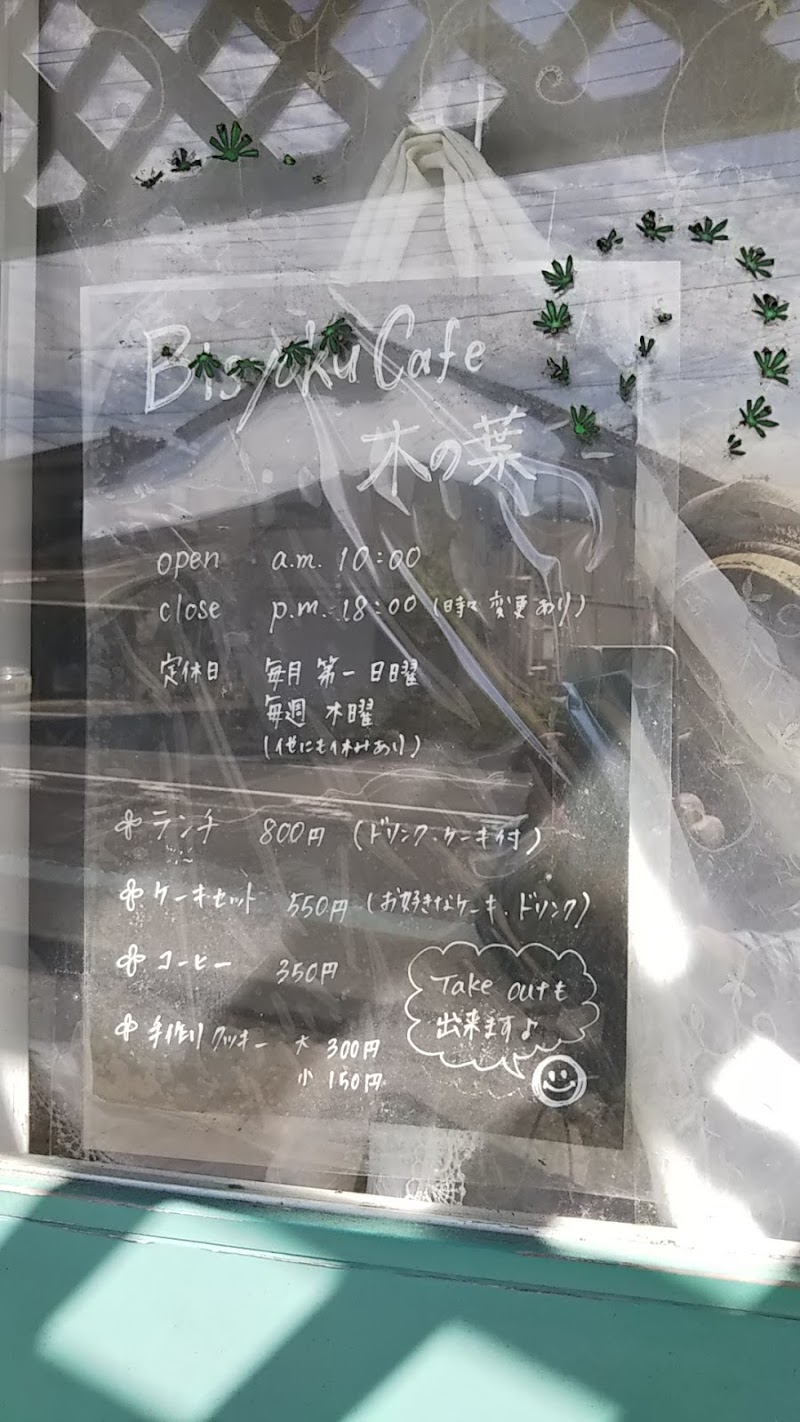 Bisyoku Cafe
木の葉
open a.m. 10:00
close p.m. 18:00 (時々変更あり)
定休日 毎月 第一 日曜
毎週 木曜
(他にも休みあり)
ランチ 800円 (ドリンク・ケーキ付)
ケーキセット 550円 (お好きなケーキ・ドリンク)
コーヒー 350円
手作りクッキー 大 300円
小 150円
Take outも
出来ます♪